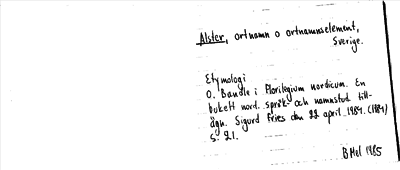 Alster, ortnamn o ortnamnselement,
Sverige.
Etymologi
O. Bandle i Florilegium nordicum. En
bukett nord. språk- och namnstud. till-
ägn. Sigurd Fries den 22 april 1984. (1984)
s. 21.
BMel 1985